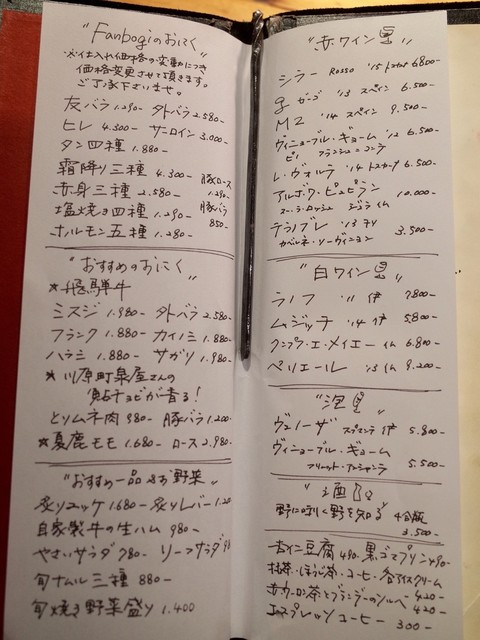 "Fanbogiのおにく"
※仕入れ価格の変動につき
価格変更させて頂きます。
ご了承下さいませ。
友バラ 1.290- 外バラ 2.580-
ヒレ 4.300- サーロイン 3.000-
タン四種 1.880-
霜降り三種 4.300- 豚ロース 1.290-
赤身三種 2.580-
塩焼き四種 1.290- 豚バラ 850-
ホルモン五種 1.280-
"おすすめのおにく"
★飛騨牛
ミスジ 1.980- 外バラ 2.580-
フランク 1.880- カイノミ 1.880-
ハラミ 1.880- サガリ 1.980-
★川原町泉屋さんの
鮎チョビが香る!
とりムネ肉 980- 豚バラ 1.200-
★夏鹿モモ 1.680- ロース 2.980-
"おすすめ一品&お野菜"
炙りユッケ 1.680- 炙りレバー
自家製牛の生ハム 980-
やさいサラダ 780- リーフサラダ
旬ナムル三種 880-
旬焼き野菜盛り 1.400
"赤ワイン里"
シラー Rosso '15 トスカーナ 6800-
g ガーゴ '13 スペイン 6.500-
M2 '14 スペイン 9.500-
ヴィニューブル・ギョーム '12 6.500-
ピノ フランシュ=コンテ
レ・ヴォルテ '14 トスカーナ 6.500-
アルボワ・ピュピラン 10.000-
ジュラ
テラノブレ '13 チリ 3.500-
カベルネ・ソーヴィニョン
"白ワイン里"
ラノフ '11 伊 7.800-
ムジッチ '14 伊 5.800-
クンプ・エ・メイエー 6.800-
ペリエール '13 9.200-
"泡里"
ヴェノーザ スプマンテ 伊 5.800-
ヴィニューブル・ギョーム
5.500-
"酒"
野に咲く野を知る 4合瓶
3.500-
杏仁豆腐 490- 黒ごまプリン 490-
抹茶・ほうじ茶・コーヒー・各アイスクリーム 420-
赤ウーロン茶とブランデーのソルベ 420-
エスプレッソコーヒー 300-